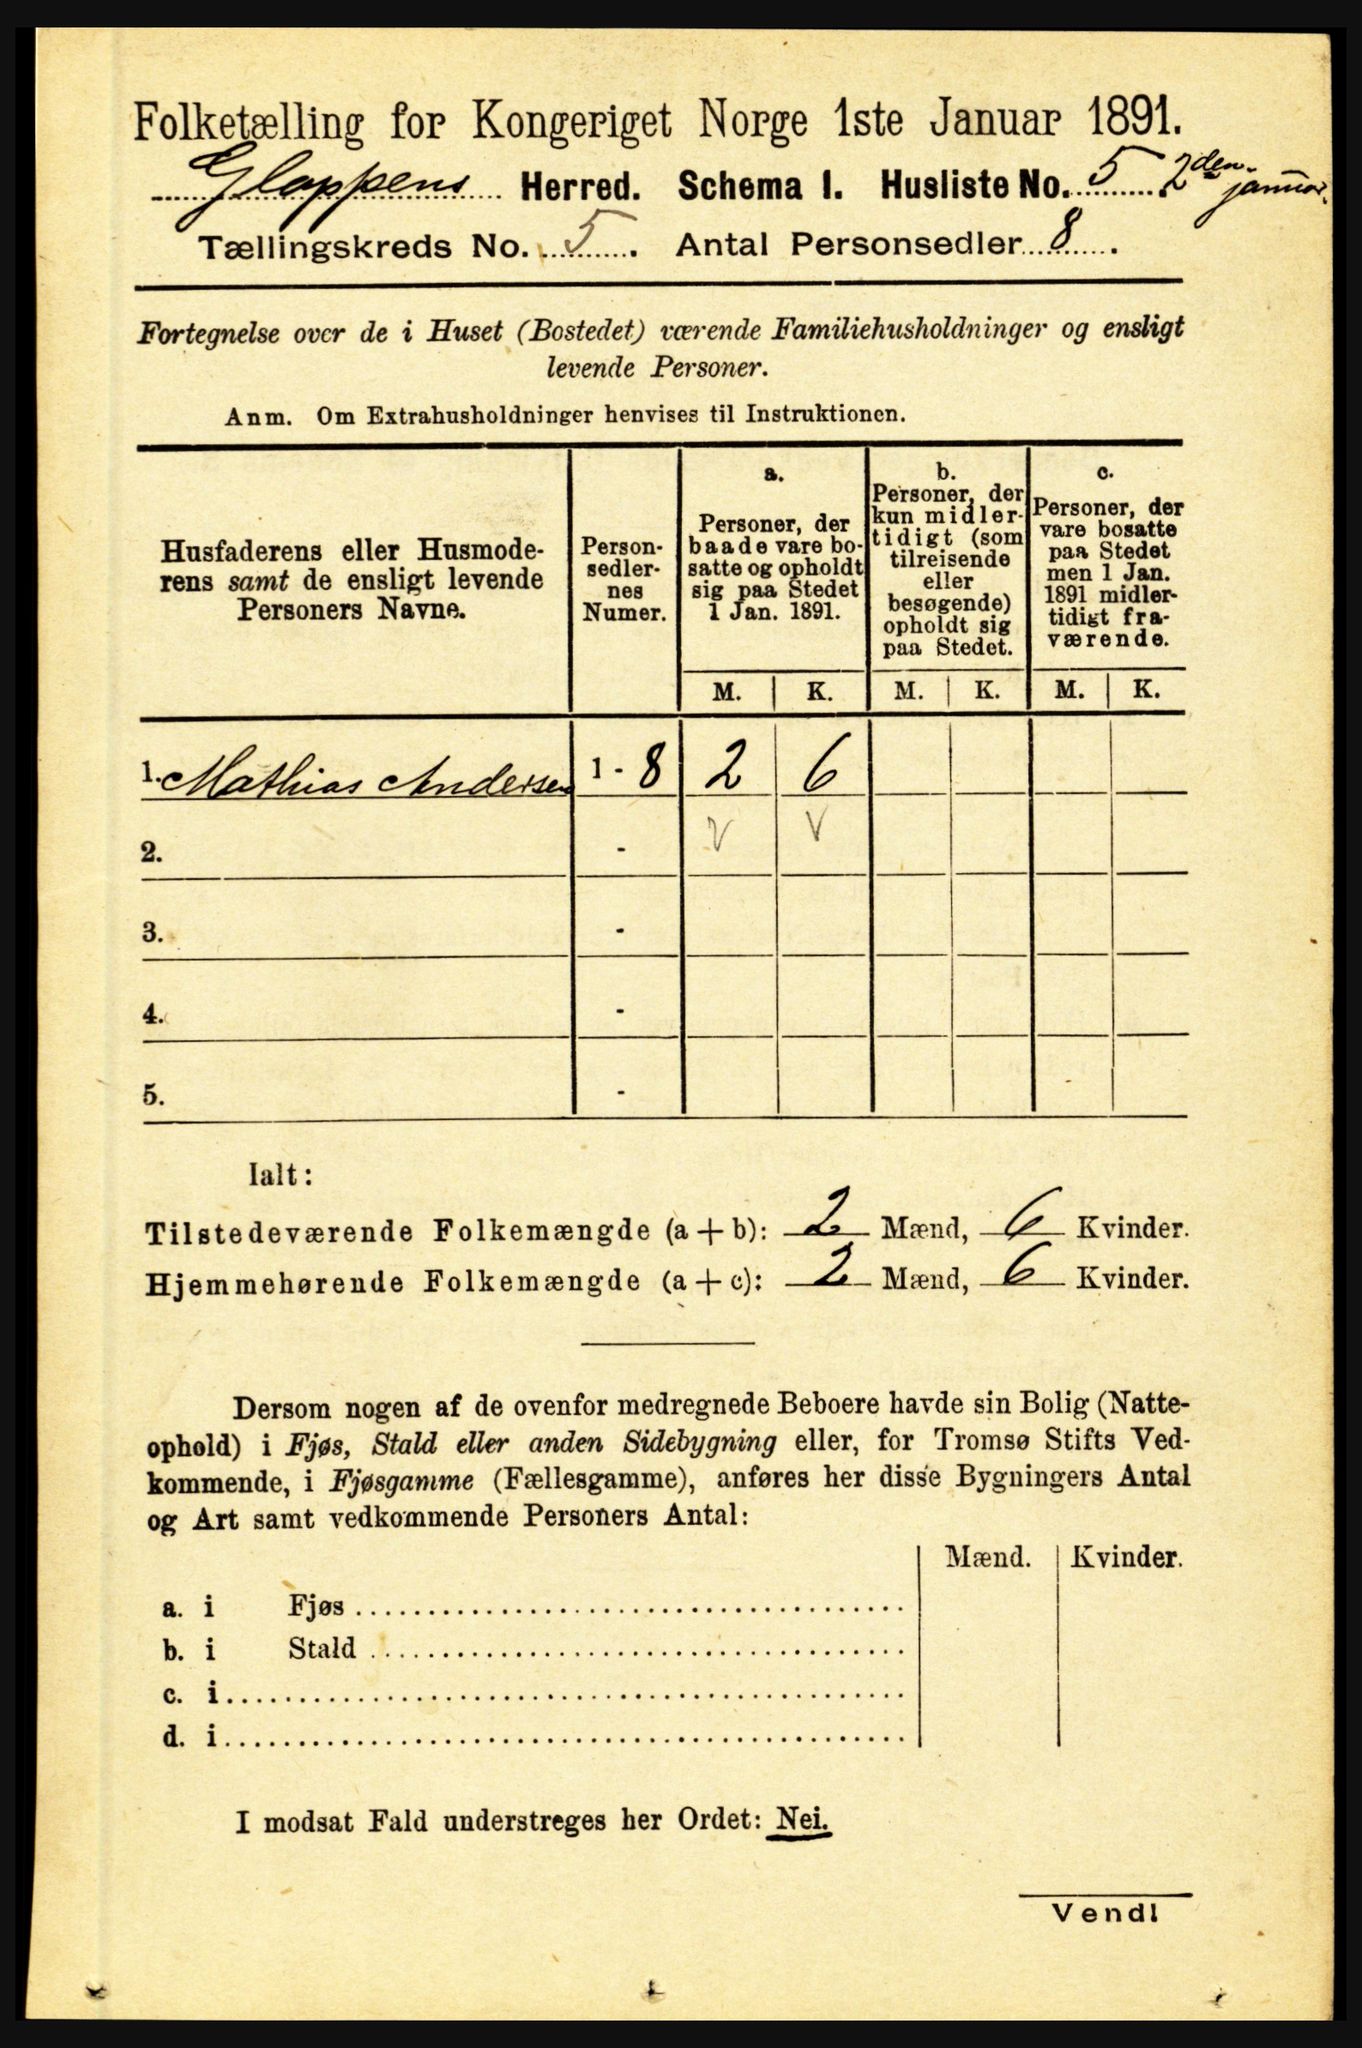 Folketælling for Kongeriget Norge 1ste Januar 1891.
Gloppens Herred. Schema I. Husliste No. 5. 2den januar.
Tællingskreds No. 5. Antal Personsedler 8.
Fortegnelse over de i Huset (Bostedet) værende Familiehusholdninger og ensligt
levende Personer.
Anm. Om Extrahusholdninger henvises til Instruktionen.
Husfaderens eller Husmode-
rens samt de ensligt levende
Personers Navne.
Person-
sedler-
nes
Numer.
a.
Personer, der
baade vare bo-
satte og opholdt
sig paa Stedet
1 Jan. 1891.
b.
Personer, der
kun midler-
tidigt (som
tilreisende
eller
besøgende)
opholdt sig
paa Stedet.
c.
Personer, der
vare bosatte
paa Stedet
men 1 Jan.
1891 midler-
tidigt fra-
værende.
M. K. M. K. M. K.
1. Mathias Andersen 1 - 8 2 6
2. - v v
3. -
4. -
5. -
Ialt:
Tilstedeværende Folkemængde (a + b): 2 Mænd, 6 Kvinder.
Hjemmehørende Folkemængde (a + c): 2 Mænd, 6 Kvinder.
Dersom nogen af de ovenfor medregnede Beboere havde sin Bolig (Natte-
ophold) i Fjøs, Stald eller anden Sidebygning eller, for Tromsø Stifts Ved-
kommende, i Fjøsgamme (Fællesgamme), anføres her disse Bygningers Antal
og Art samt vedkommende Personers Antal:
Mænd. Kvinder.
a. i Fjøs
b. i Stald
c. i
d. i
I modsat Fald understreges her Ordet: Nei.
Vend!